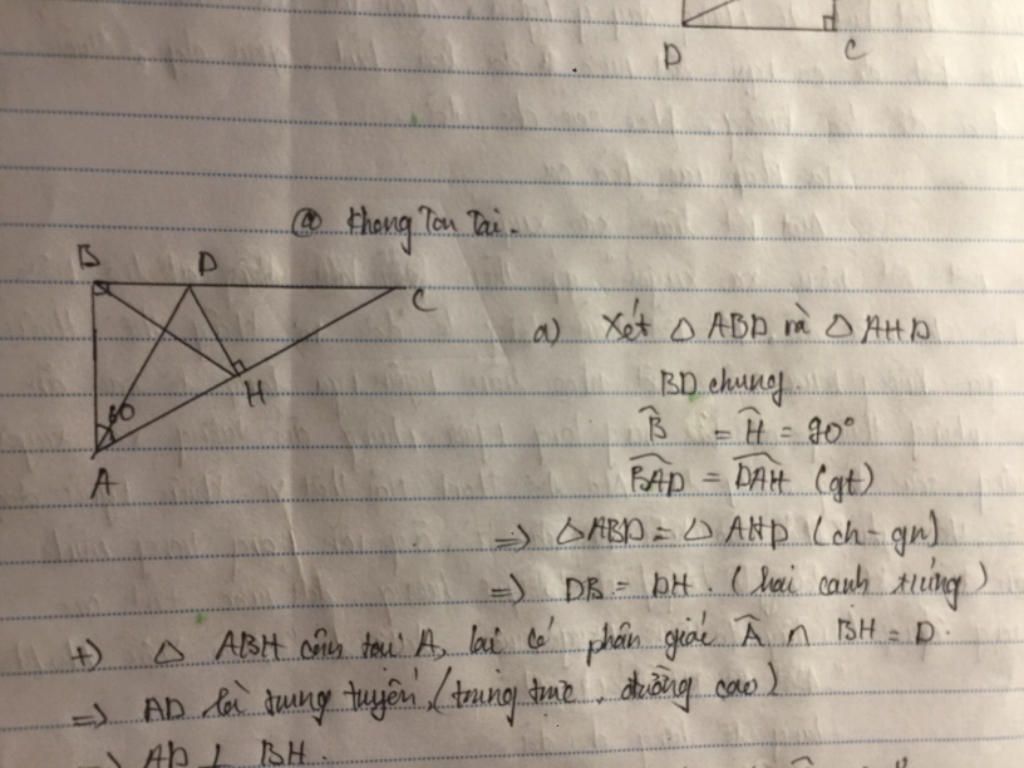 D C
@ Khong Ton Tai.
B D C
H
60
A
a) Xét △ ABD và △ AHD
BD chung.
B̂ = Ĥ = 90°
BAD = DAH (gt)
=> △ABD = △AHD (ch - gn)
=> DB = DH. (hai cạnh tứng)
+) △ ABH cân tại A, lại có phân giác Â ∩ BH = D.
=> AD là trung tuyến, (trung trực, đường cao)
=> AD ⊥ BH.